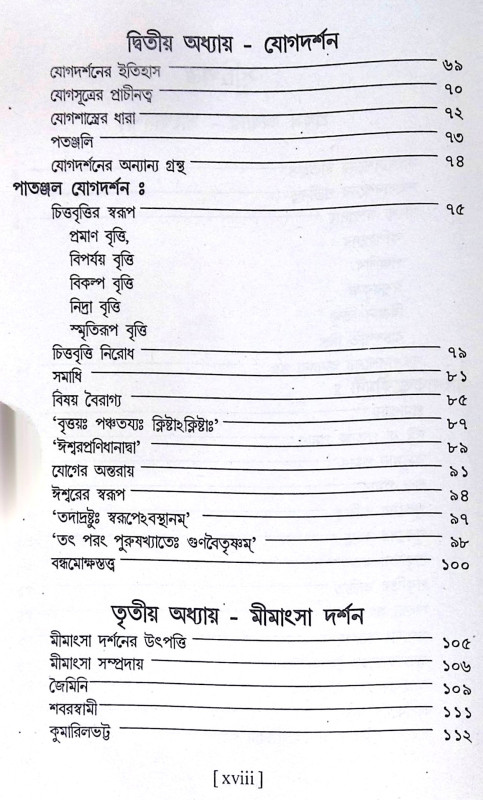 দ্বিতীয় অধ্যায় - যোগদর্শন
যোগদর্শনের ইতিহাস ৬৯
যোগসূত্রের প্রাচীনত্ব ৭০
যোগশাস্ত্রের ধারা ৭২
পতঞ্জলি ৭৩
যোগদর্শনের অন্যান্য গ্রন্থ ৭৪
পাতঞ্জল যোগদর্শন ঃ
চিত্তবৃত্তির স্বরূপ ৭৫
প্রমাণ বৃত্তি,
বিপর্যয় বৃত্তি
বিকল্প বৃত্তি
নিদ্রা বৃত্তি
স্মৃতিরূপ বৃত্তি
চিত্তবৃত্তি নিরোধ ৭৯
সমাধি ৮১
বিষয় বৈরাগ্য ৮৫
‘বৃত্তয়ঃ পঞ্চতয্যঃ ক্লিষ্টাঽক্লিষ্টাঃ’ ৮৭
‘ঈশ্বরপ্রণিধানাদ্বা’ ৮৯
যোগের অন্তরায় ৯১
ঈশ্বরের স্বরূপ ৯৪
‘তদাদ্রষ্টুঃ স্বরূপেঽবস্থানম্’ ৯৭
‘তৎ পরং পুরুষখ্যাতেঃ গুণবৈতৃষ্ণম্’ ৯৮
বন্ধমোক্ষতত্ত্ব ১০০
তৃতীয় অধ্যায় - মীমাংসা দর্শন
মীমাংসা দর্শনের উৎপত্তি ১০৫
মীমাংসা সম্প্রদায় ১০৬
জৈমিনি ১০৯
শবরস্বামী ১১১
কুমারিলভট্ট ১১২
[ xviii ]